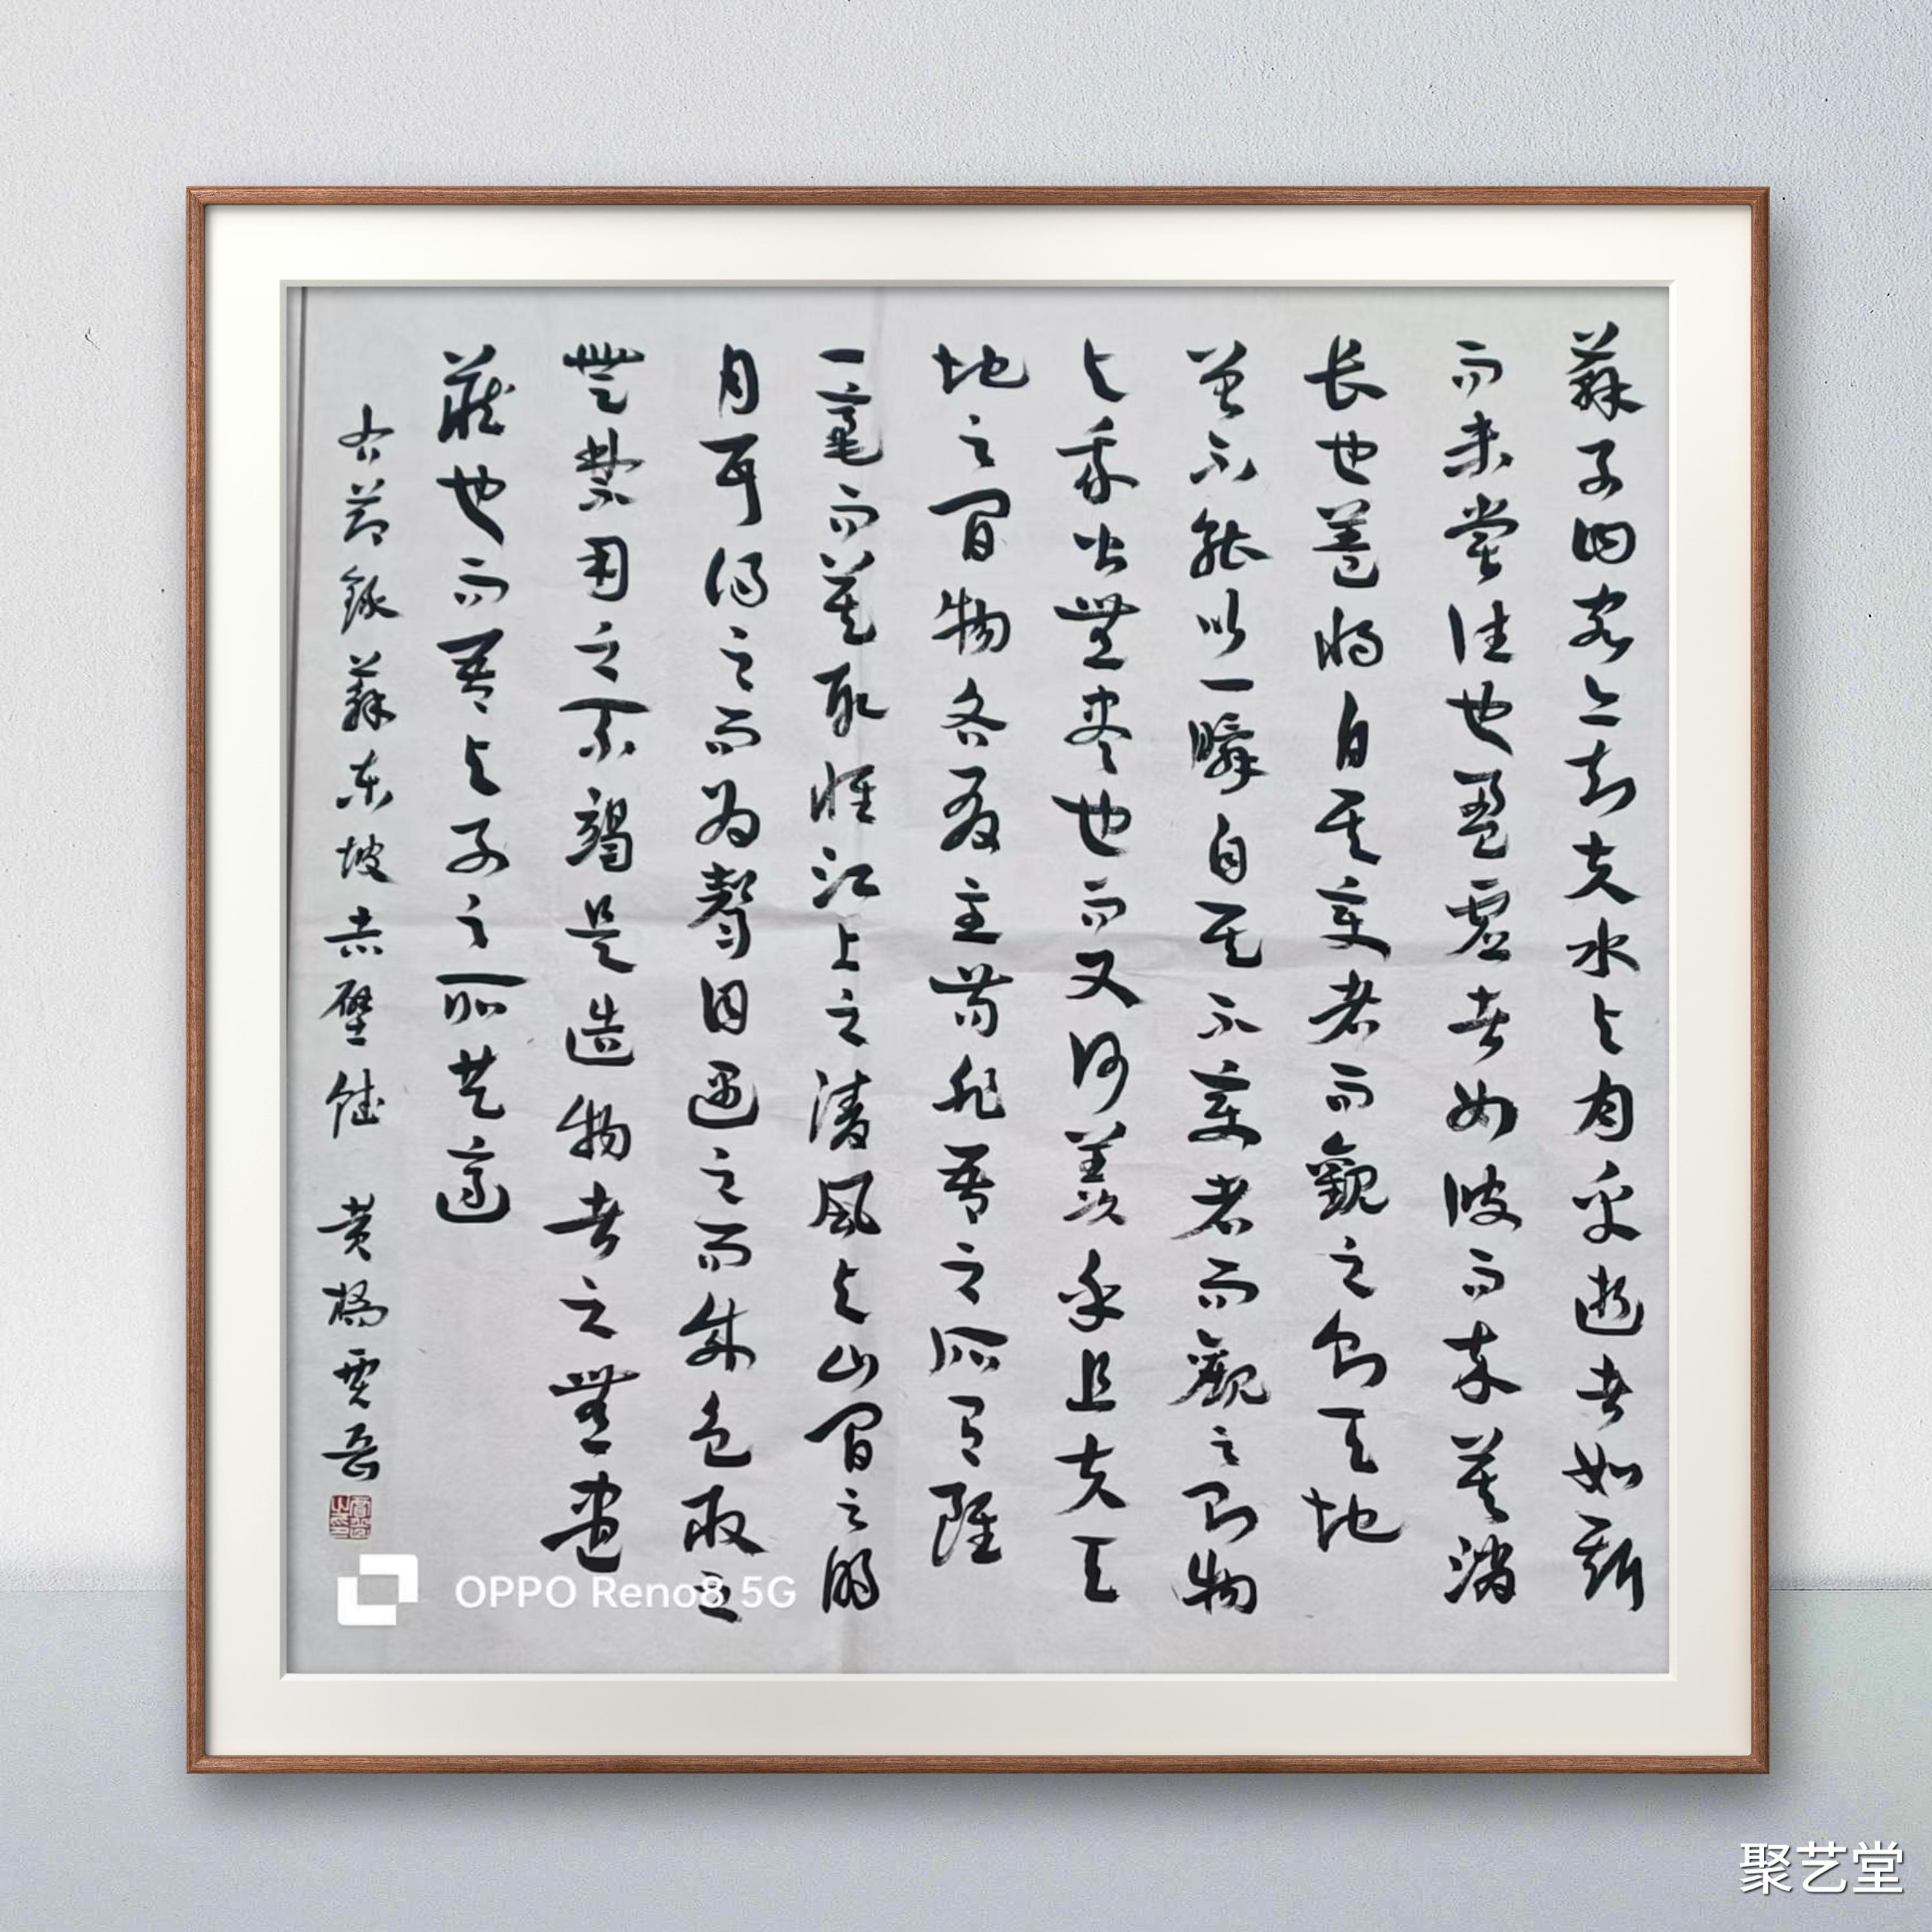 蘇子曰客亦知夫水与月乎逝者如斯
而未尝往也盈虚者如彼而卒莫消
长也蓋将自其变者而觀之则天地
曾不能以一瞬自其不变者而觀之则物
与我皆無尽也而又何羡乎且夫天
地之间物各有主苟非吾之所有雖
一毫而莫取惟江上之清風与山间之明
月耳得之而为聲目遇之而成色取之
無禁用之不竭是造物者之無盡
藏也而吾与子之所共適
右节錄蘇东坡赤壁賦 黄橋贾岳
OPPO Reno8 5G
聚艺堂